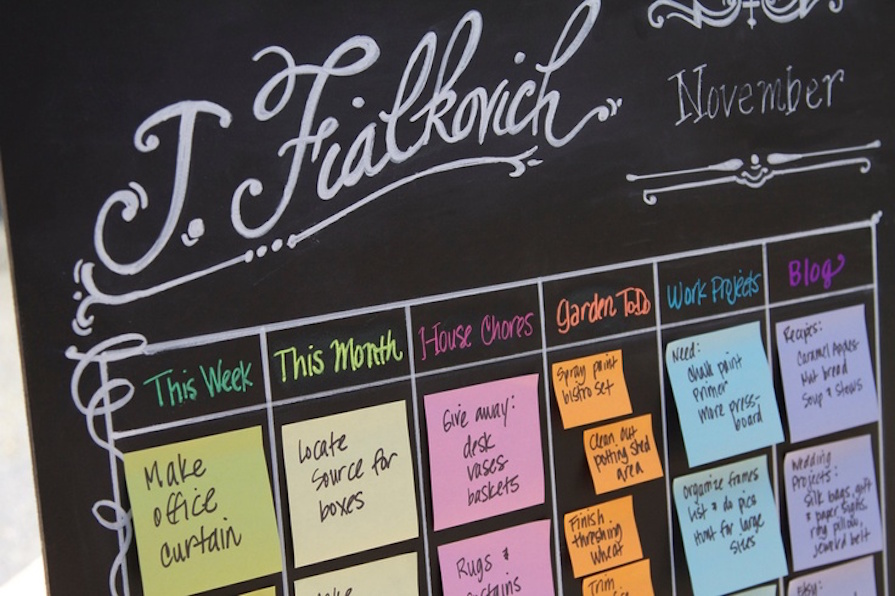 J. Fialkovich
November
This Week
This Month
House Chores
Garden ToDo
Work Projects
Blog
Make
office
curtain
Locate
source for
boxes
Give away:
desk
vases
baskets
Rugs &
Spray paint
bistro set
Clean out
potting shed
area
Finish
threshing
wheat
Trim
Need:
Chalk paint
Primer
More press-
board
Organize frames
list & do pics
Hunt for large
sizes
Recipes:
Caramel Apples
Nut bread
Soup & Stews
Wedding
Projects:
silk bags, gift
& paper signs,
ring pillow,
jeweled belt